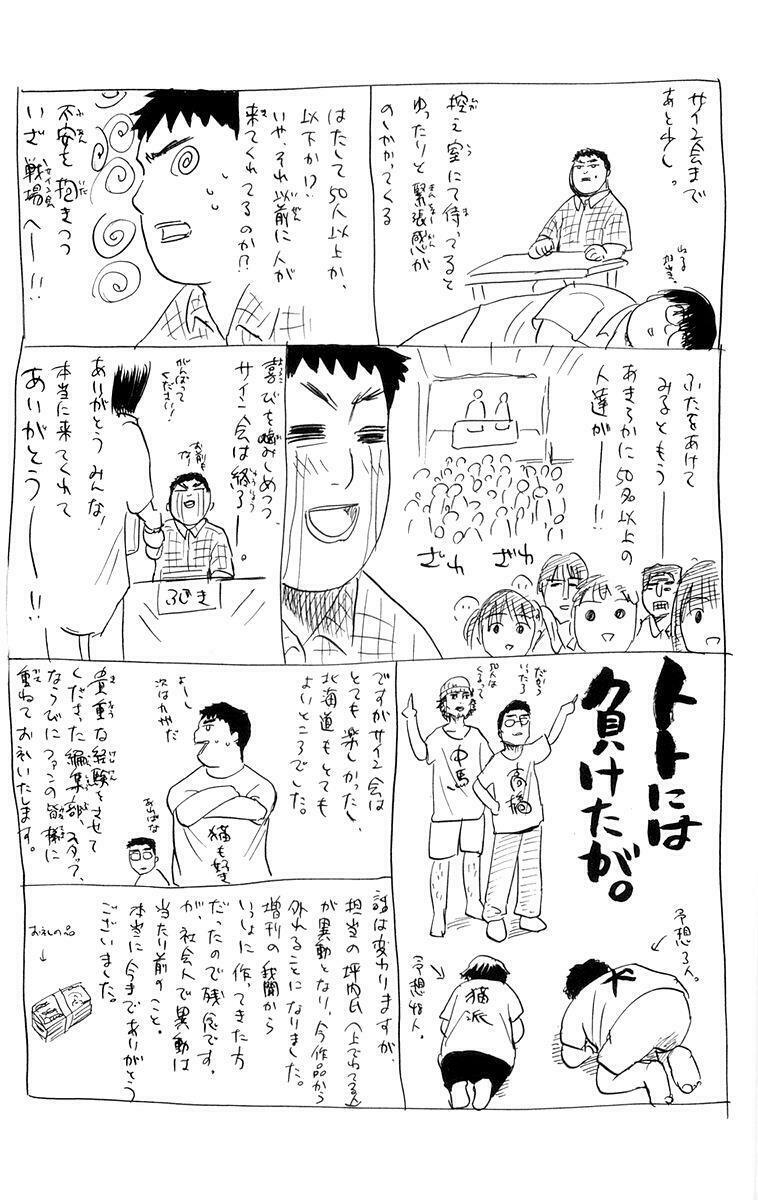 サイン会まで
あと少し。
控え室にて待ってると
ゆったりと緊張感が
のしかかってくる
ねる
担当。
はたして50人以上か、
以下か!?
いや、それ以前に人が
来てくれてるのか!?
不安を抱きつつ
いざ戦場へー!!
サイン会
ふたをあけて
みるともう——
あきらかに50名以上の
人達が——!!
ざわ
ざわ
喜びを噛みしめつつ、
サイン会は終了—。
がんばって
ください!
お前も
な
ふじき
ありがとうみんな!
本当に来てくれて
ありがとう——!!
トトには
負けたが。
だから
いったろ
中馬
高橋
予想3人。
猫派
ですがサイン会は
とても楽しかったし、
北海道もとても
よいところでした。
よーし
猫も好き
あばばな
貴重な経験をさせて
くださった編集部、スタッフ、
ならびにファンの皆様に
重ねてお礼いたします。
話は変わりますが、
担当の坪内氏(上でねてる人)
が異動となり、今作品から
外れることになりました。
増刊の我聞から
いっしょに作ってきた方
だったので残念です。
が、社会人で異動は
当たり前のこと。
本当に今までありがとう
ございました。
お礼の品